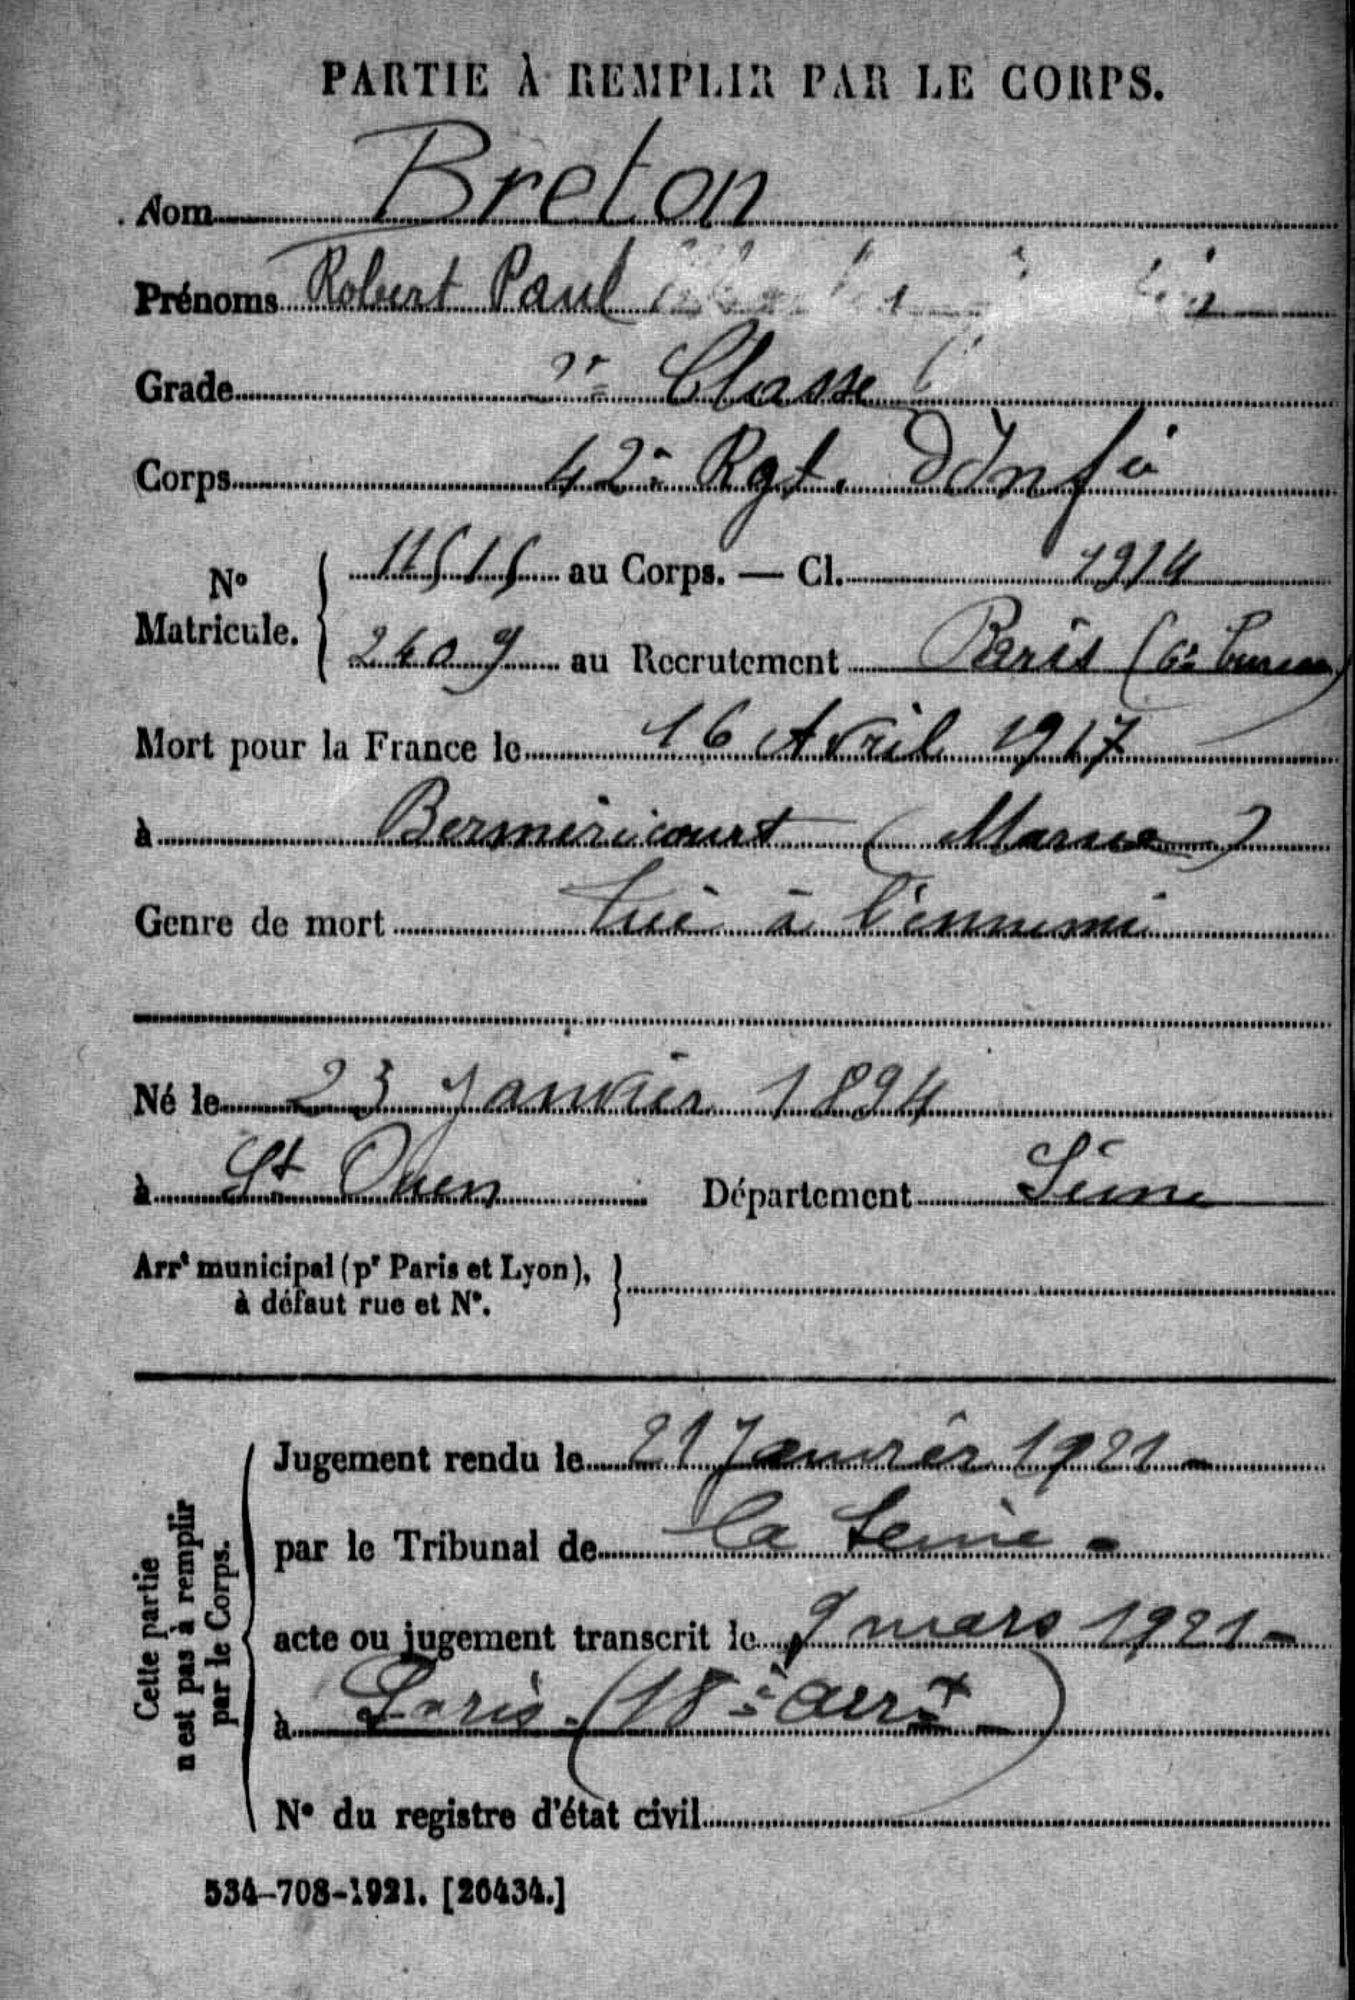 PARTIE À REMPLIR PAR LE CORPS.
Nom Breton
Prénoms Robert Paul
Grade 2e Classe
Corps 42e Rgt. D'Infie
No Matricule. { 11515 au Corps. — Cl. 1914
2409 au Recrutement Paris (6e bureau)
Mort pour la France le 16 Avril 1917
à Berméricourt (Marne)
Genre de mort tué à l'ennemi
Né le 23 Janvier 1894
à St Ouen Département Seine
Arrt municipal (pr Paris et Lyon),
à défaut rue et No. }
Cette partie
n'est pas à remplir
par le Corps.
Jugement rendu le 21 Janvier 1921 -
par le Tribunal de la Seine -
acte ou jugement transcrit le 9 mars 1921 -
à Paris - (18e arrt -)
No du registre d'état civil
534-708-1921. [26434.]